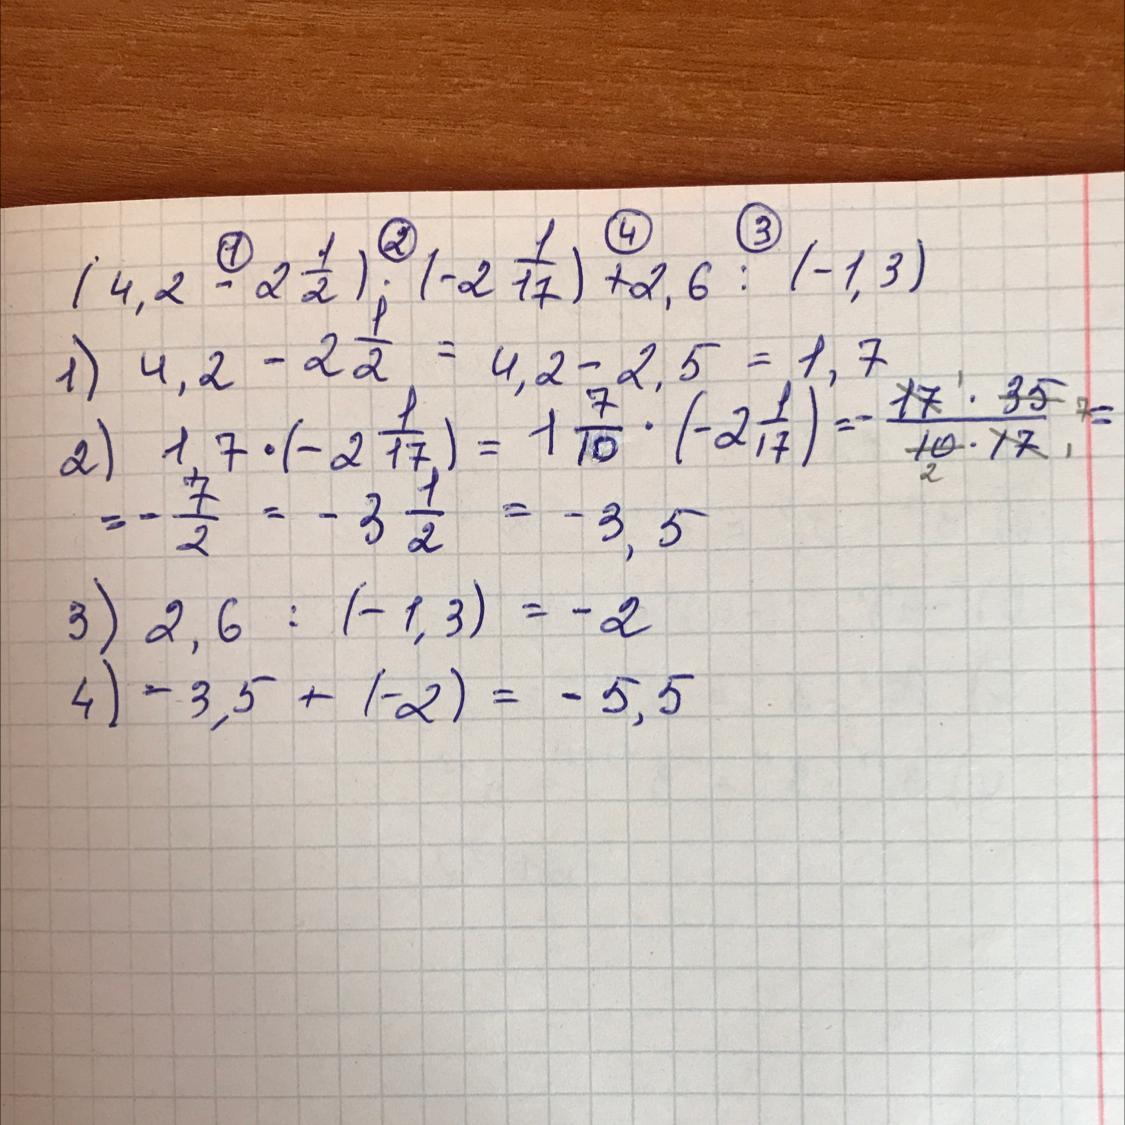 (4,2 ① - 2 1/2) ② : (-2 1/17) ④ + 2,6 ③ : (-1,3)
1) 4,2 - 2 1/2 = 4,2 - 2,5 = 1,7
2) 1,7 · (-2 1/17) = 1 7/10 · (-2 1/17) = - 17 1 · 35 7 / 10 2 · 17 1 =
= - 7/2 = - 3 1/2 = - 3,5
3) 2,6 : (-1,3) = - 2
4) - 3,5 + (-2) = - 5,5